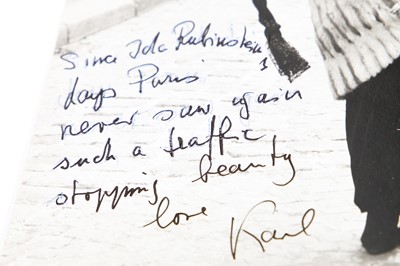 Since Ida Rubinstein's
days Paris
never saw again
such a traffic
stopping beauty
love Karl